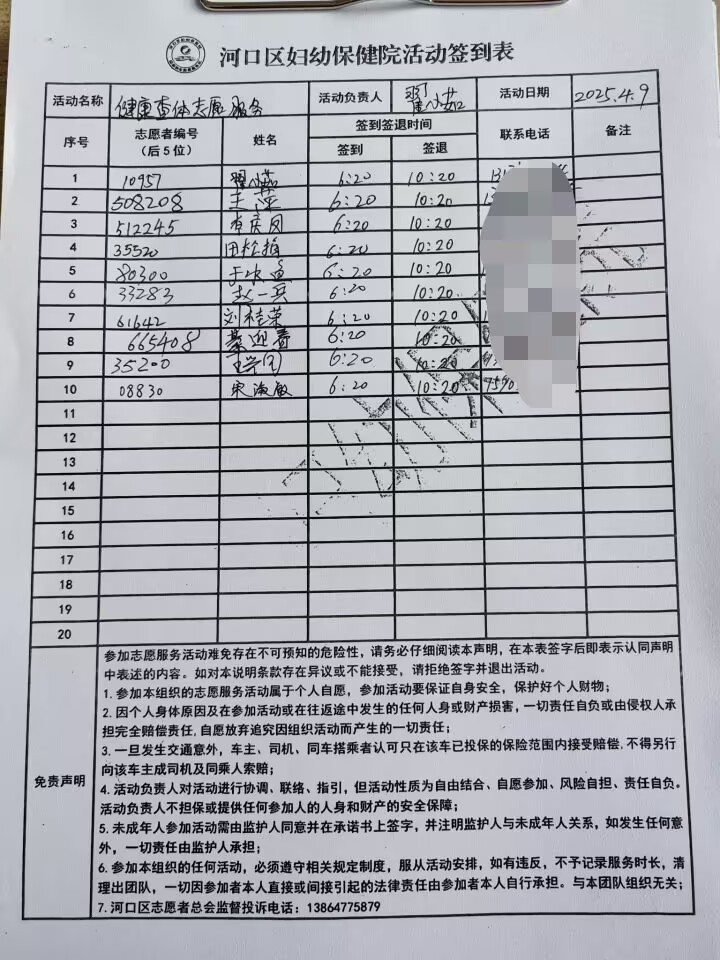 河口区妇幼保健院活动签到表
活动名称 健康查体志愿服务 活动负责人 活动日期 2025.4.9
序号 志愿者编号（后5位） 姓名 签到签退时间 联系电话 备注
签到 签退
1 10957 6:20 10:20
2 508208 王萍 6:20 10:20
3 512245 6:20 10:20
4 35520 6:20 10:20
5 80300 6:20 10:20
6 33283 赵一兵 6:20 10:20
7 61642 刘桂荣 6:20 10:20
8 665408 綦迎春 6:20 10:20
9 35200 6:20 10:20
10 08830 宋淑敏 6:20 10:20
11
12
13
14
15
16
17
18
19
20
免责声明
参加志愿服务活动难免存在不可预知的危险性，请务必仔细阅读本声明，在本表签字后即表示认同声明
中表述的内容。如对本说明条款存在异议或不能接受，请拒绝签字并退出活动。
1.参加本组织的志愿服务活动属于个人自愿，参加活动要保证自身安全，保护好个人财物；
2.因个人身体原因及在参加活动或在往返途中发生的任何人身或财产损害，一切责任自负或由侵权人承
担完全赔偿责任,自愿放弃追究因组织活动而产生的一切责任；
3.一旦发生交通意外，车主、司机、同车搭乘者认可只在该车已投保的保险范围内接受赔偿,不得另行
向该车主成司机及同乘人索赔；
4.活动负责人对活动进行协调、联络、指引，但活动性质为自由结合、自愿参加、风险自担、责任自负。
活动负责人不担保或提供任何参加人的人身和财产的安全保障；
5.未成年人参加活动需由监护人同意并在承诺书上签字，并注明监护人与未成年人关系，如发生任何意
外，一切责任由监护人承担；
6.参加本组织的任何活动，必须遵守相关规定制度，服从活动安排，如有违反，不予记录服务时长，清
理出团队，一切因参加者本人直接或间接引起的法律责任由参加者本人自行承担。与本团队组织无关；
7.河口区志愿者总会监督投诉电话：13864775879